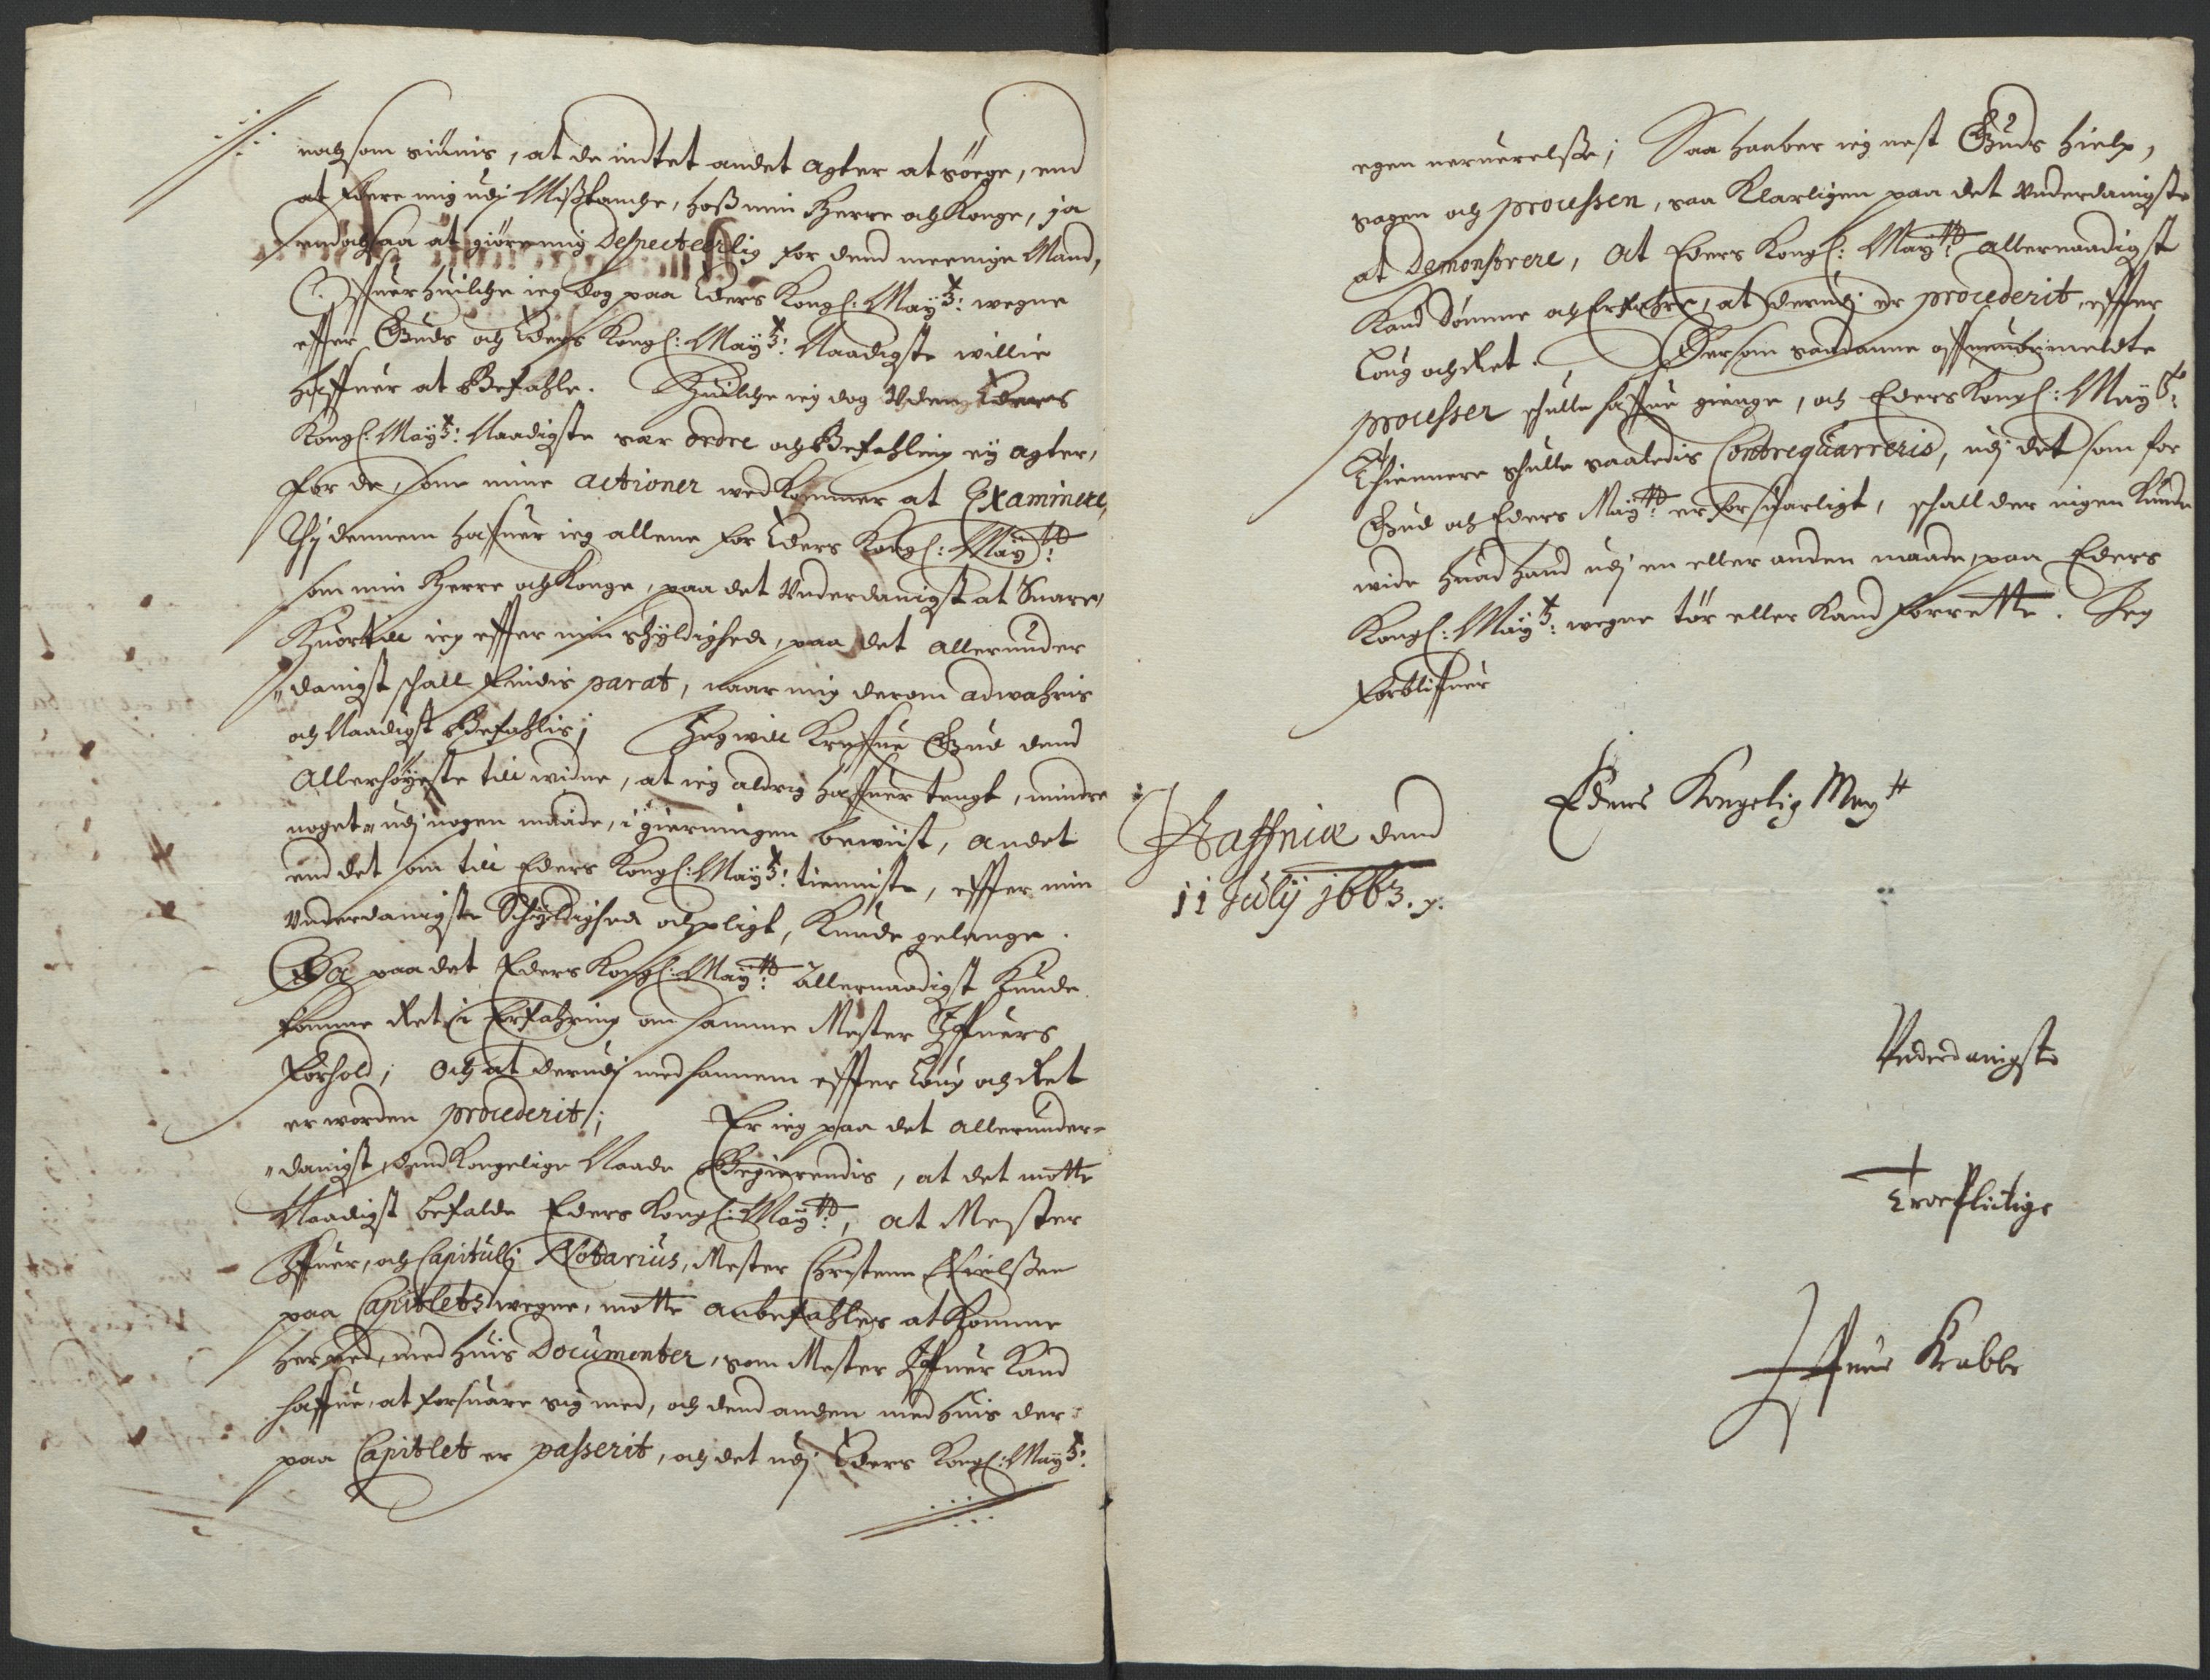 noch som siunis, at de indtet andet agter at søge, end
at føre mig udj Misstanche, hoss min Herre och Konge, ja
endochsaa at giøre mig despecteerlig for dend meenige Mand,
Offuer huilche ieg dog paa Eders Kongl: Maytz: wegne
effter Guds och Eders Kongl: Maytz: Naadigste willie
haffuer at befahle. Huilche ieg dog uden Eders
Kongl: Maytz: Naadigste sær ordre och Befahling ey agter,
for de, som mine actioner wedkommer at Examinere,
Thj dennem haffuer ieg allene for Eders Kongl: Maytt:
som min Herre och Konge, paa det Underdanigst at Suare,
Huortill ieg effter min schyldighed, paa det allerunder
danigst schall findis parat, naar mig derom adwahris
och Naadigst befahlis; Jeg will Kreffue Gud dend
Allerhøyeste till widne, at ieg aldrig haffuer tengt, mindre
noget udj nogen maade, i gierningen bewiist, andet
end det som till Eders Kongl: Maytz: tienniste, effter min
Underdanigste Schyldighed och pligt, Kunde gelange.
Da paa det Eders Kongl: Maytt: allernaadigst Kunde
komme Ret i Erfahring om samme Mester Iffuers
Forhold; och at derudj med hannem effter Loug och Ret
er worden procederit; Er ieg paa det allerunder-
danigst dend Kongelige Naade Begierendis, at det motte
Naadigst befalde Eders Kongl: Maytt:, at Mester
Iffuer, och Capitulj Notarius, Mester Christenn
paa Capitlets wegne, motte anbefahles at Komme
her ned, med huis Documenter, som Mester Iffuer Kand
haffue, at forsuare sig med, och dend anden med huis der
paa Capitlet er passerit, och det udj Eders Kongl: Maytz:
egen neruerelsse; Saa haaber ieg nest Guds hielp,
sagen och processen, saa Klarligen paa det Underdanigste
at Demonstrere, at Eders Kongl: Maytt: allernaadigst
Kand dømme och Erfahre, at derudj er procederit, effter
Loug och Ret. Dersom saadanne offuenbemeldte
processer schulle haffue gienge, och Eders Kongl: Maytz:
Thiennere schulle saaledis Contrequarreris, udj det som for
Gud och Eders Maytt: er forsuarligt, schall der ingen Kunde
wide huad hand udj en eller anden maade, paa Eders
Kongl: Maytz: wegne tør eller Kand forrette. Jeg
forbliffuer
Eders Kongelig Maytt
Haffniæ dend
11 Julij 1663.
Underdanigste
Troepligtige
Iffuer Krabbe